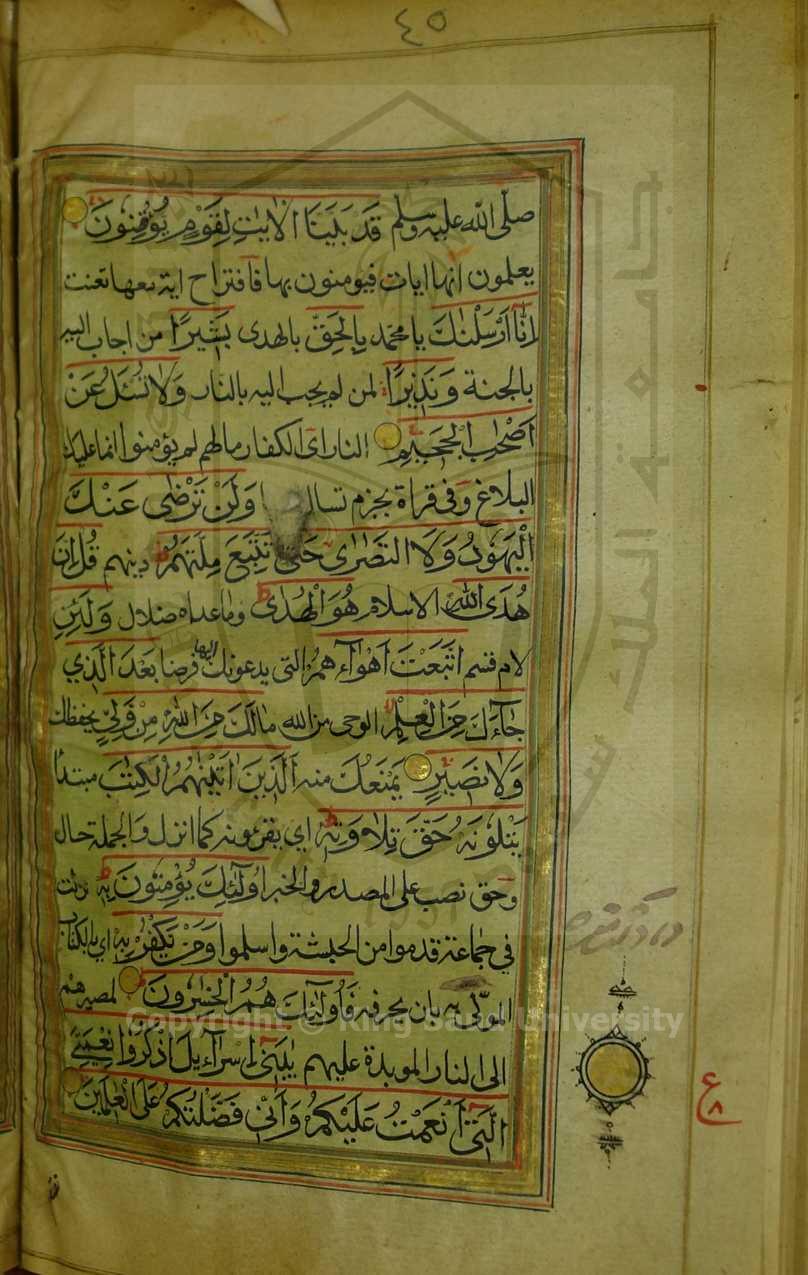 ٤٥
صلى الله عليه وسلم قَدْ بَيَّنَّا الْاٰيٰتِ لِقَوْمٍ يُوقِنُونَ
يعلمون انها ايات فيومنون بها فاقتراح اية معها تعنت
اِنَّا اَرْسَلْنٰكَ يا محمد بِالْحَقِّ بالهدى بَشِيرًا من اجاب اليه
بالجنة وَنَذِيرًا لمن لم يجب اليه بالنار وَلَا تُسْئَلُ عَنْ
اَصْحٰبِ الْجَحِيمِ النار اى الكفار مالهم لم يؤمنوا انما عليك
البلاغ وفى قراة بجزم تسال وَلَنْ تَرْضٰى عَنْكَ
الْيَهُودُ وَلَا النَّصٰرٰى حَتّٰى تَتَّبِعَ مِلَّتَهُمْ دينهم قُلْ اِنَّ
هُدَى اللّٰهِ الاسلام هُوَ الْهُدٰى وما عداه ضلال وَلَئِنِ
لام قسم اتَّبَعْتَ اَهْوَآءَهُمْ التى يدعونك اليها فرضا بَعْدَ الَّذِي
جَآءَكَ مِنَ الْعِلْمِ الوحى من الله مَا لَكَ مِنَ اللّٰهِ مِنْ وَلِيٍّ يحفظك
وَلَا نَصِيرٍ يمنعك منه اَلَّذِينَ اٰتَيْنٰهُمُ الْكِتٰبَ مبتدأ
يَتْلُونَهُ حَقَّ تِلَاوَتِهِ اى يقرءونه كما انزل والجملة حال
وحق نصب على المصدر والخبر اُولٰٓئِكَ يُؤْمِنُونَ بِهِ نزلت
فى جماعة قدموا من الحبشة واسلموا وَمَنْ يَكْفُرْ بِهِ اى بالكتاب
الموتى به بان يحرفه فَاُولٰٓئِكَ هُمُ الْخٰسِرُونَ لمصيرهم
الى النار الموبدة عليهم يٰبَنِيٓ اِسْرَآءِيلَ اذْكُرُوا نِعْمَتِيَ
الَّتِيٓ اَنْعَمْتُ عَلَيْكُمْ وَاَنِّي فَضَّلْتُكُمْ عَلَى الْعٰلَمِينَ
ع
٨
Copyright © King Saud University
جامعة الملك سعود
1957